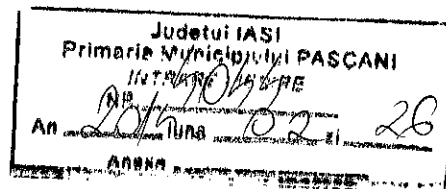 Judetul IASI
Primaria Municipiului PASCANI
INTRARE IESIRE
NR.
An 2015 luna 02 zi 26
Anexe